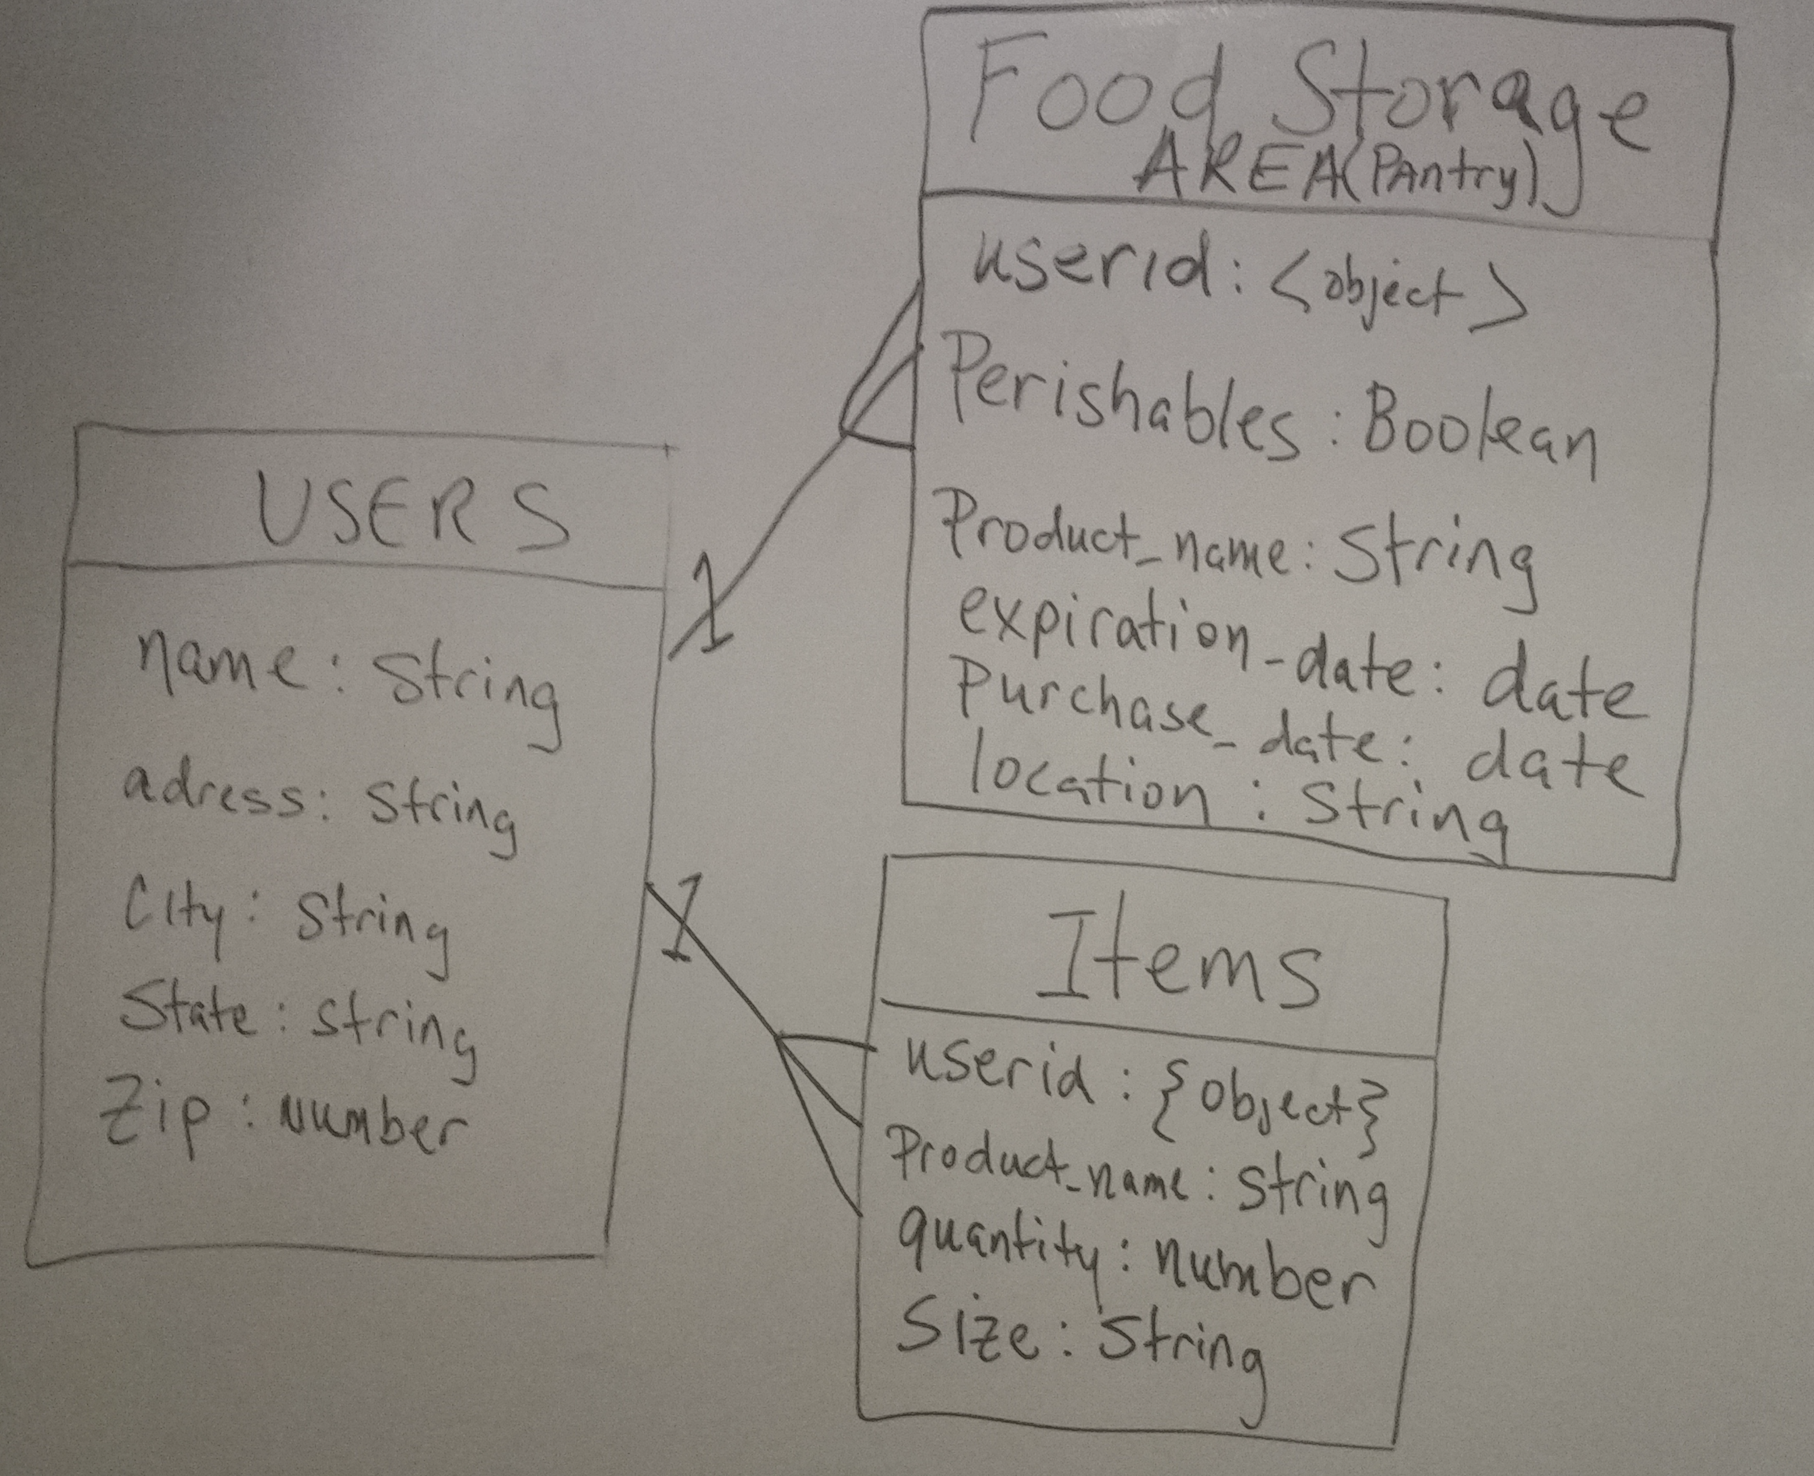 Food Storage
AREA(PAntry)
userid: <object>
Perishables: Boolean
Product_name: String
expiration_date: date
Purchase_date: date
location: String
USERS
name: String
adress: String
City: String
State: String
Zip: Number
1
1
Items
userid: {object}
Product_name: String
quantity: number
Size: String